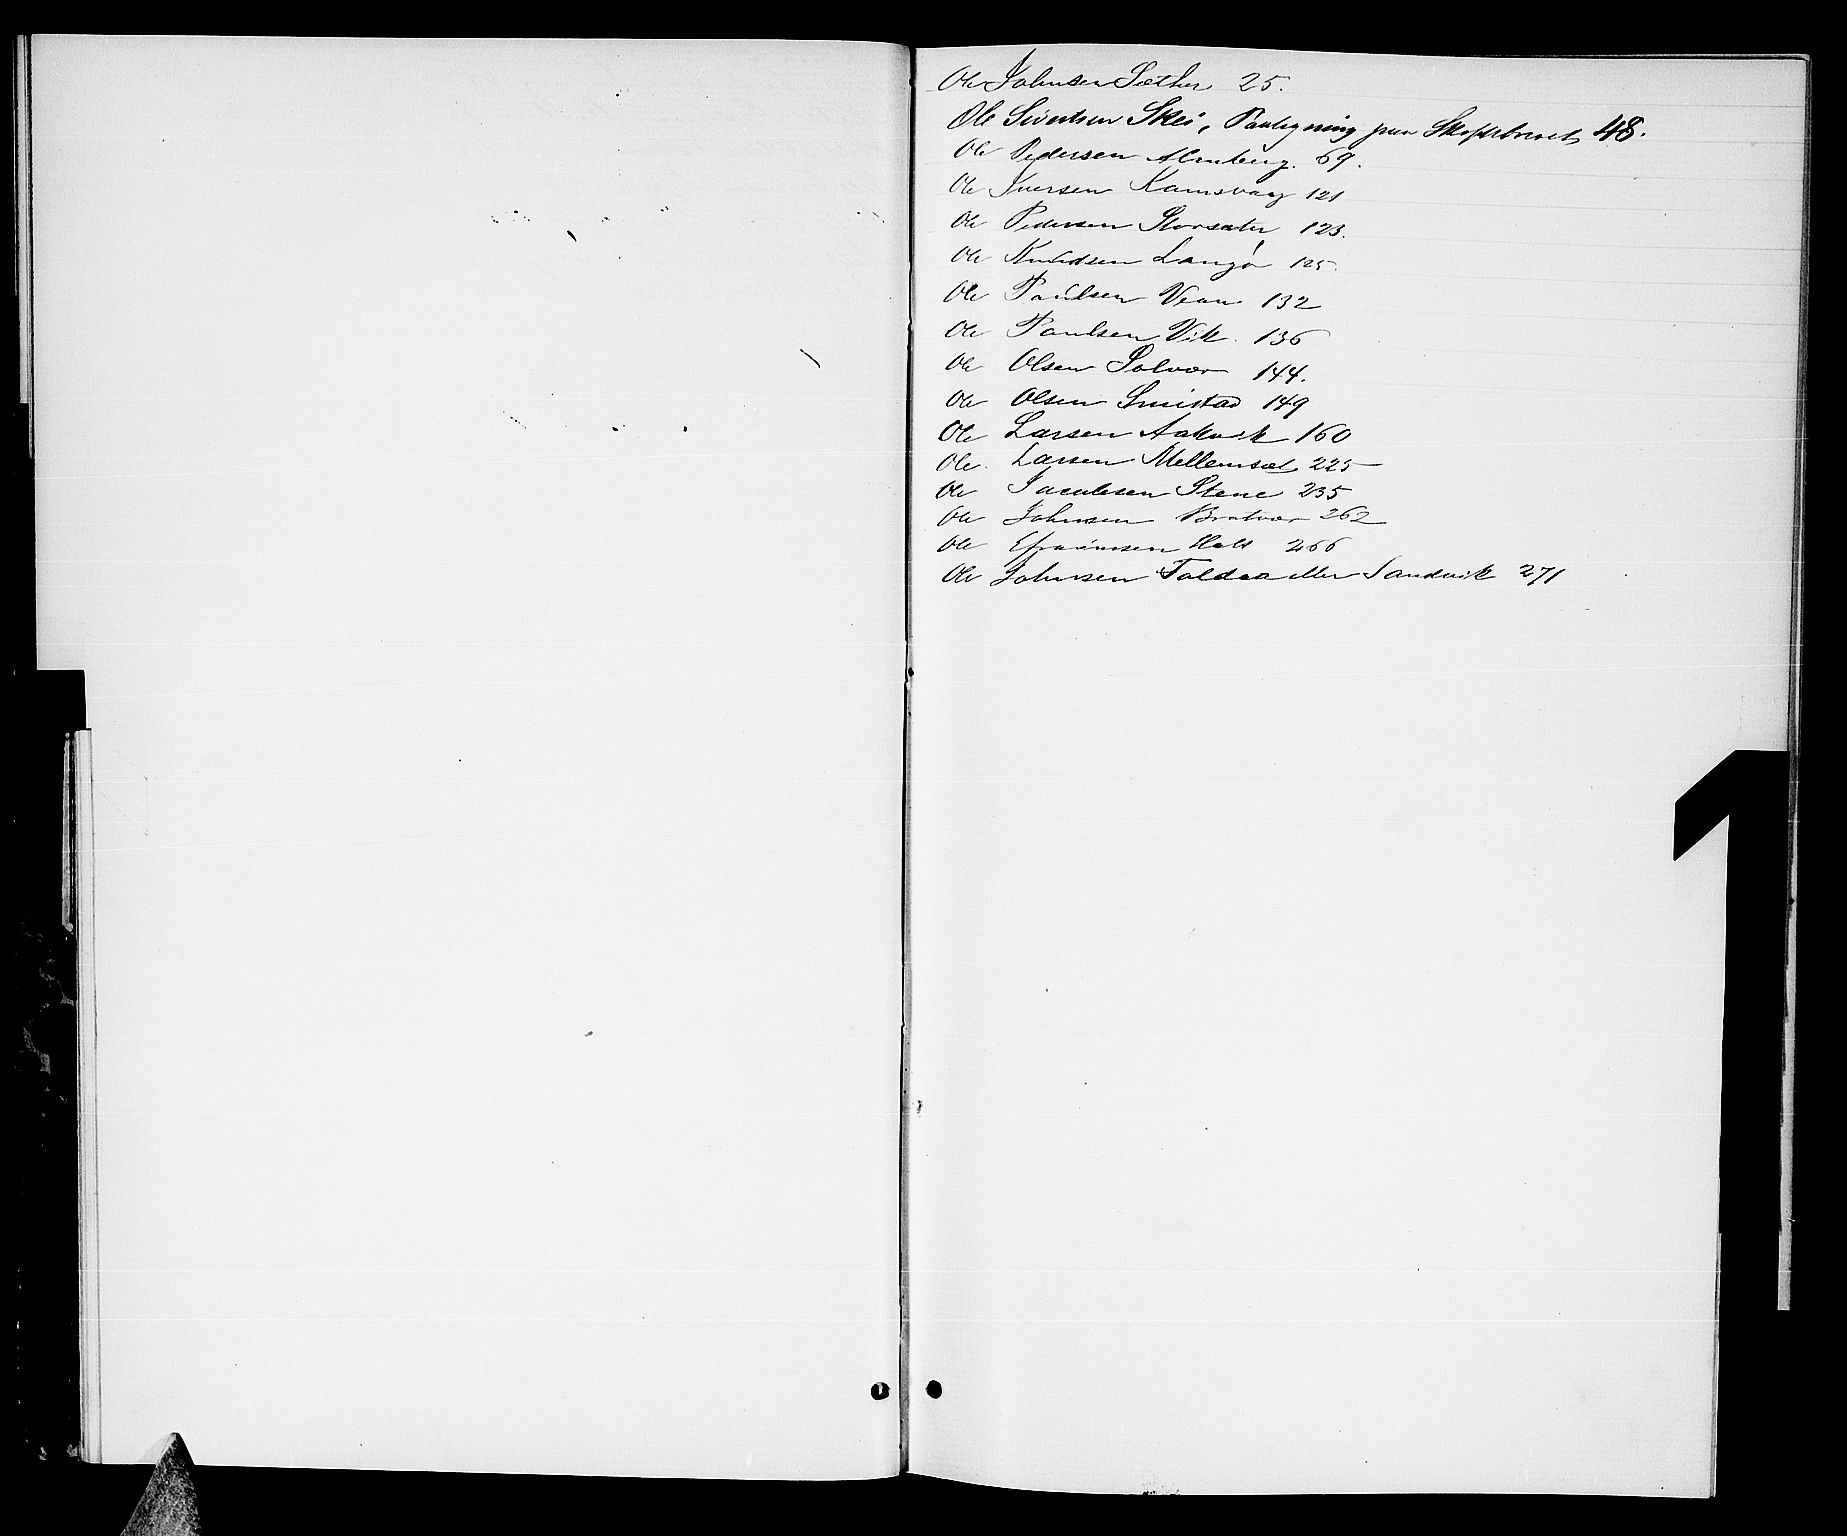 Ole Johnsen Sæther 25.
Ole Sivertsen Skei, paa Skjøtebrevet 48.
Ole Pedersen Almberg. 69.
Ole Iversen Ramsvaag 121
Ole Pedersen Storsæter 123.
Ole Knudsen Langø 125.
Ole Paulsen Vean 132
Ole Paulsen Vik. 136
Ole Olsen Solvær 144.
Ole Olsen Smistad 149
Ole Larsen Aakvik 160
Ole. Larsen Mellemsæt 225
Ole Jacobsen Stene 235
Ole Johnsen Bratvær 262
Ole Efraimsen Holt 266
Ole Johnsen Foldaa eller Sandvik 271
1